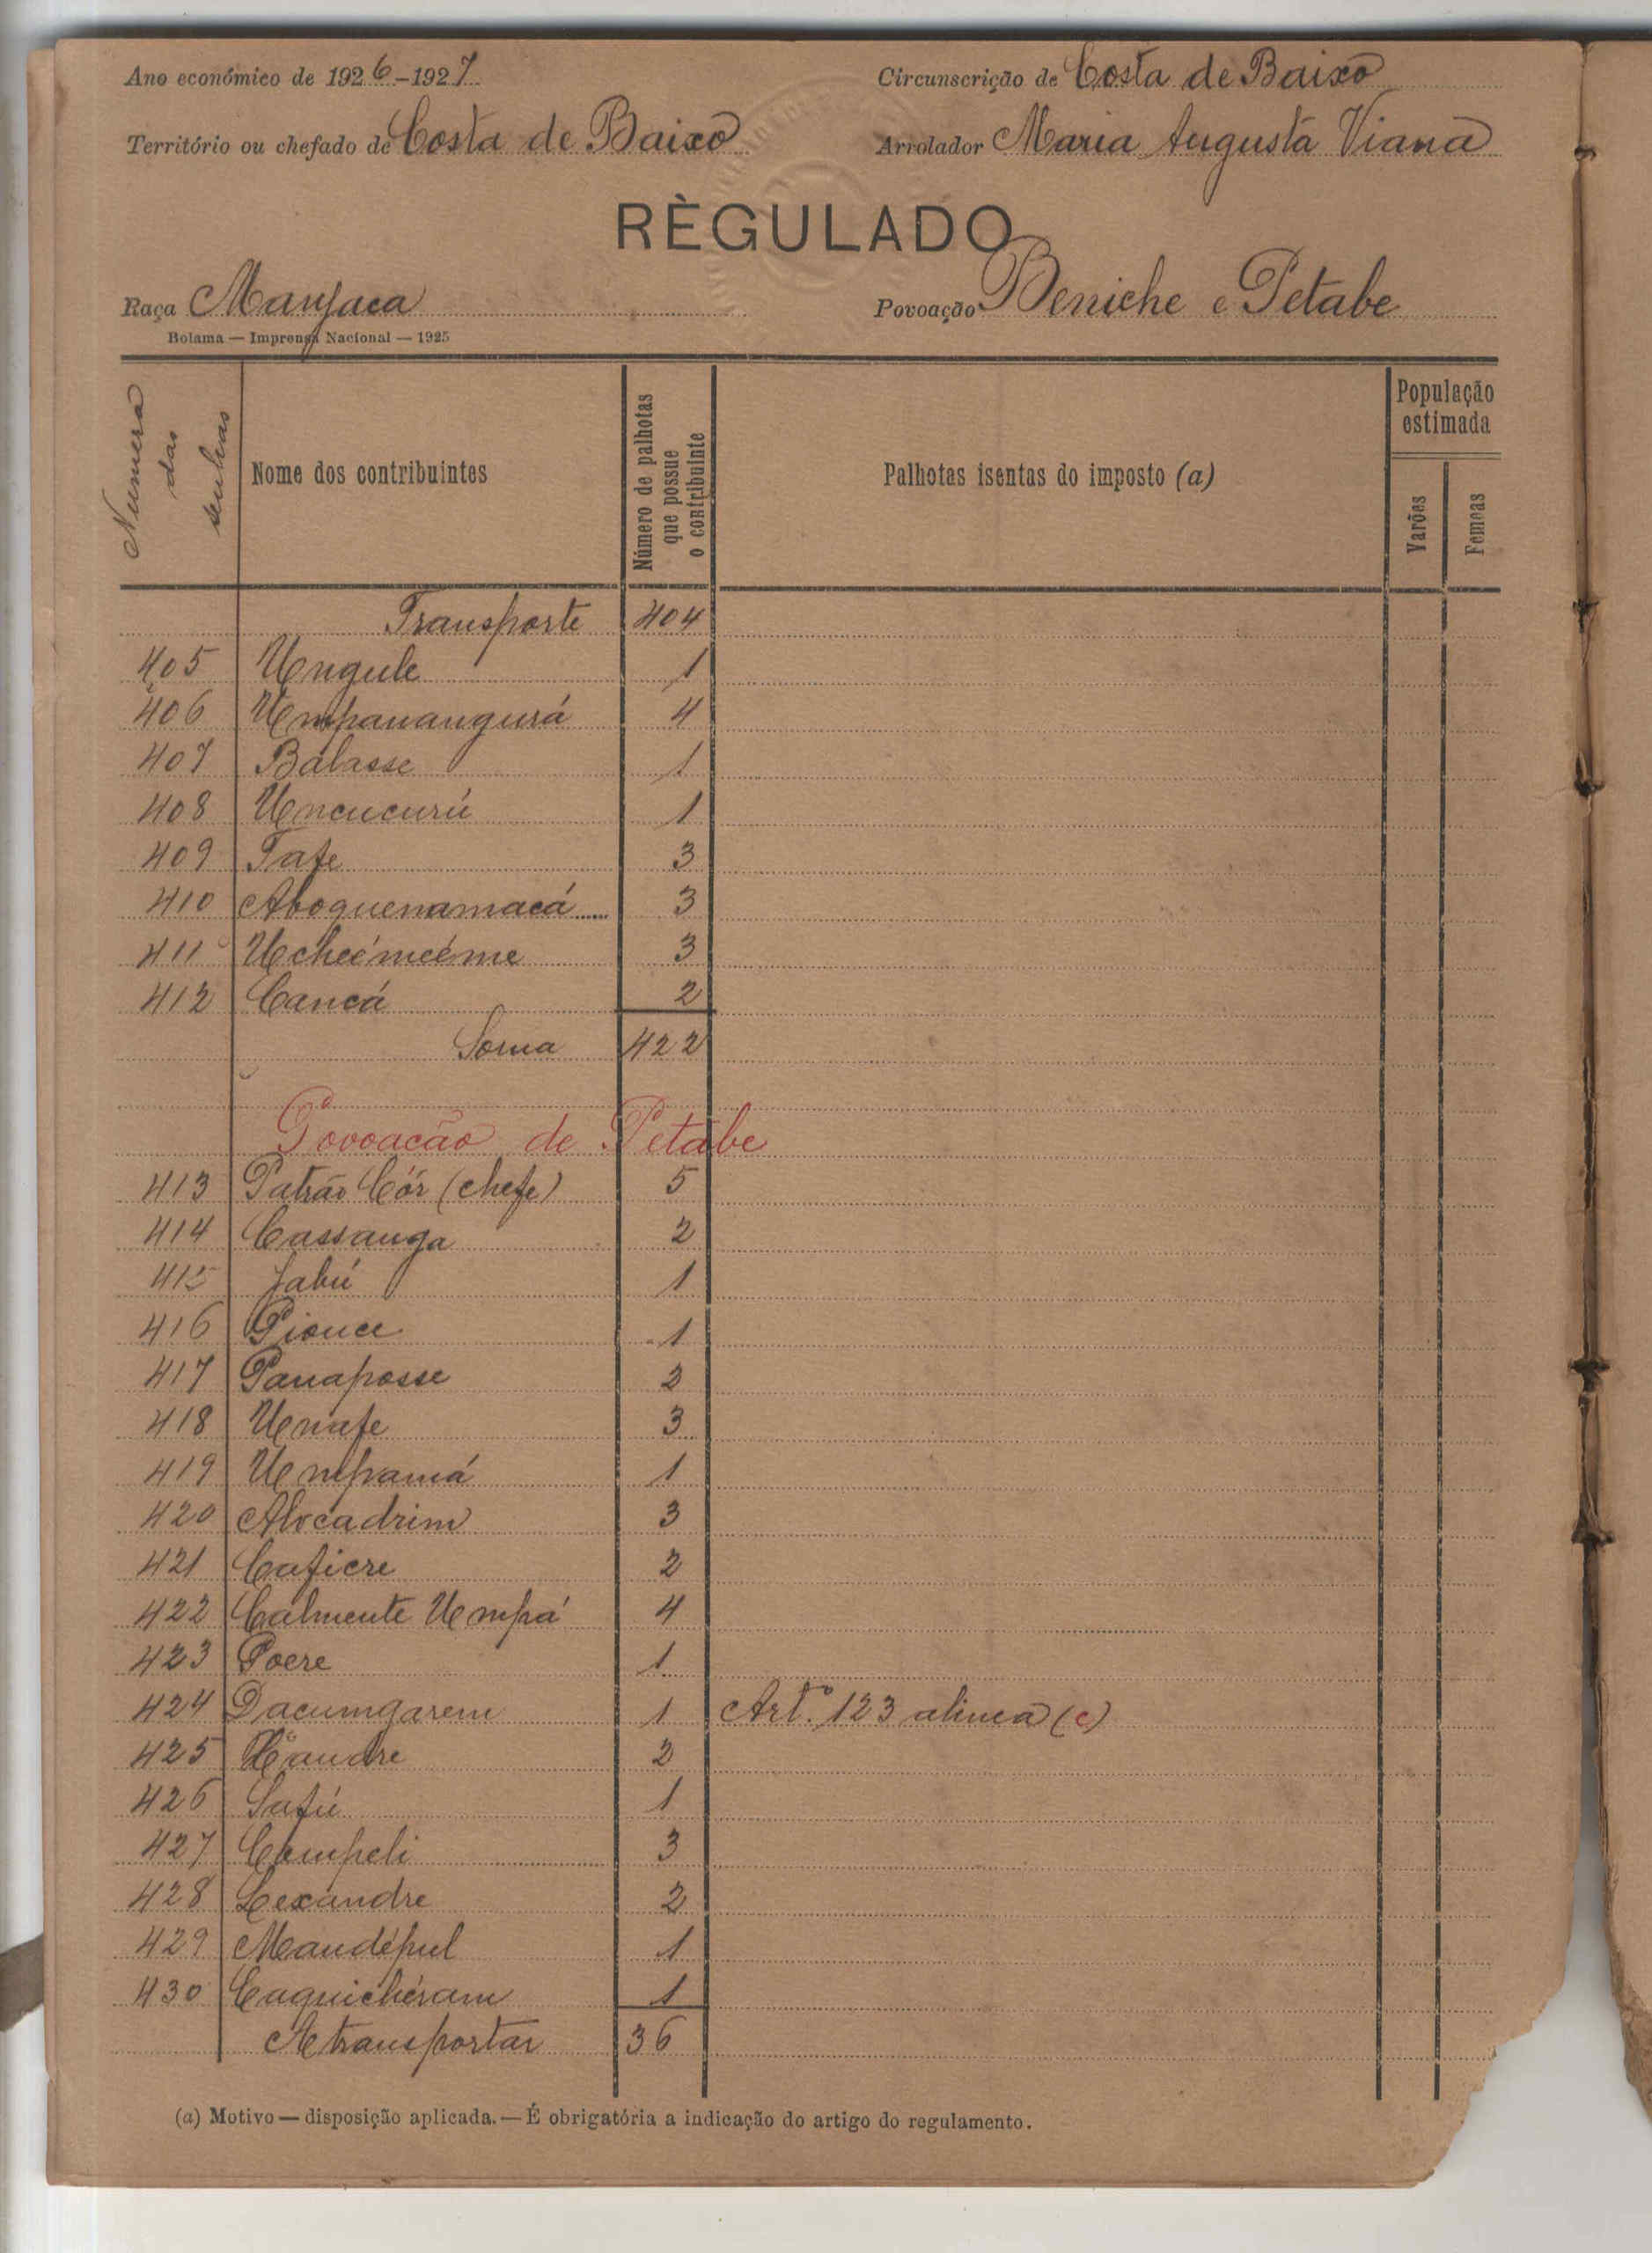 Ano económico de 1926-1927
Circunscrição de Costa de Baixo
Território ou chefado de Costa de Baixo
Arrolador Maria Augusta Viana
RÈGULADO
Raça Manjaca
Povoação Beniche e Petabe
Bolama — Imprensa Nacional — 1925
Numera das senhas
Nome dos contribuintes
Número de palhotas que possue o contribuinte
Palhotas isentas do imposto (a)
População estimada
Varões
Femeas
Transporte 404
405 Ungule 1
406 Umpanangurá 4
407 Balasse 1
408 Uncucurú 1
409 Tafe 3
410 Aboquenamacá 3
411 Ucheémcéme 3
412 Cancá 2
Soma 422
Povoacão de Petabe
413 Patrão Cór (chefe) 5
414 Cassanga 2
415 Jabú 1
416 Pionce 1
417 Panaposse 2
418 Unafe 3
419 Umpamá 1
420 Alocadrim 3
421 Caficre 2
422 Calmente Umpá 4
423 Poere 1
424 Dacumgarem 1 Art.º 123 alinea (c)
425 Candre 2
426 Safú 1
427 Campeli 3
428 Lexandre 2
429 Mandépul 1
430 Caquichéram 1
A transportar 36
(a) Motivo — disposição aplicada. — É obrigatória a indicação do artigo do regulamento.